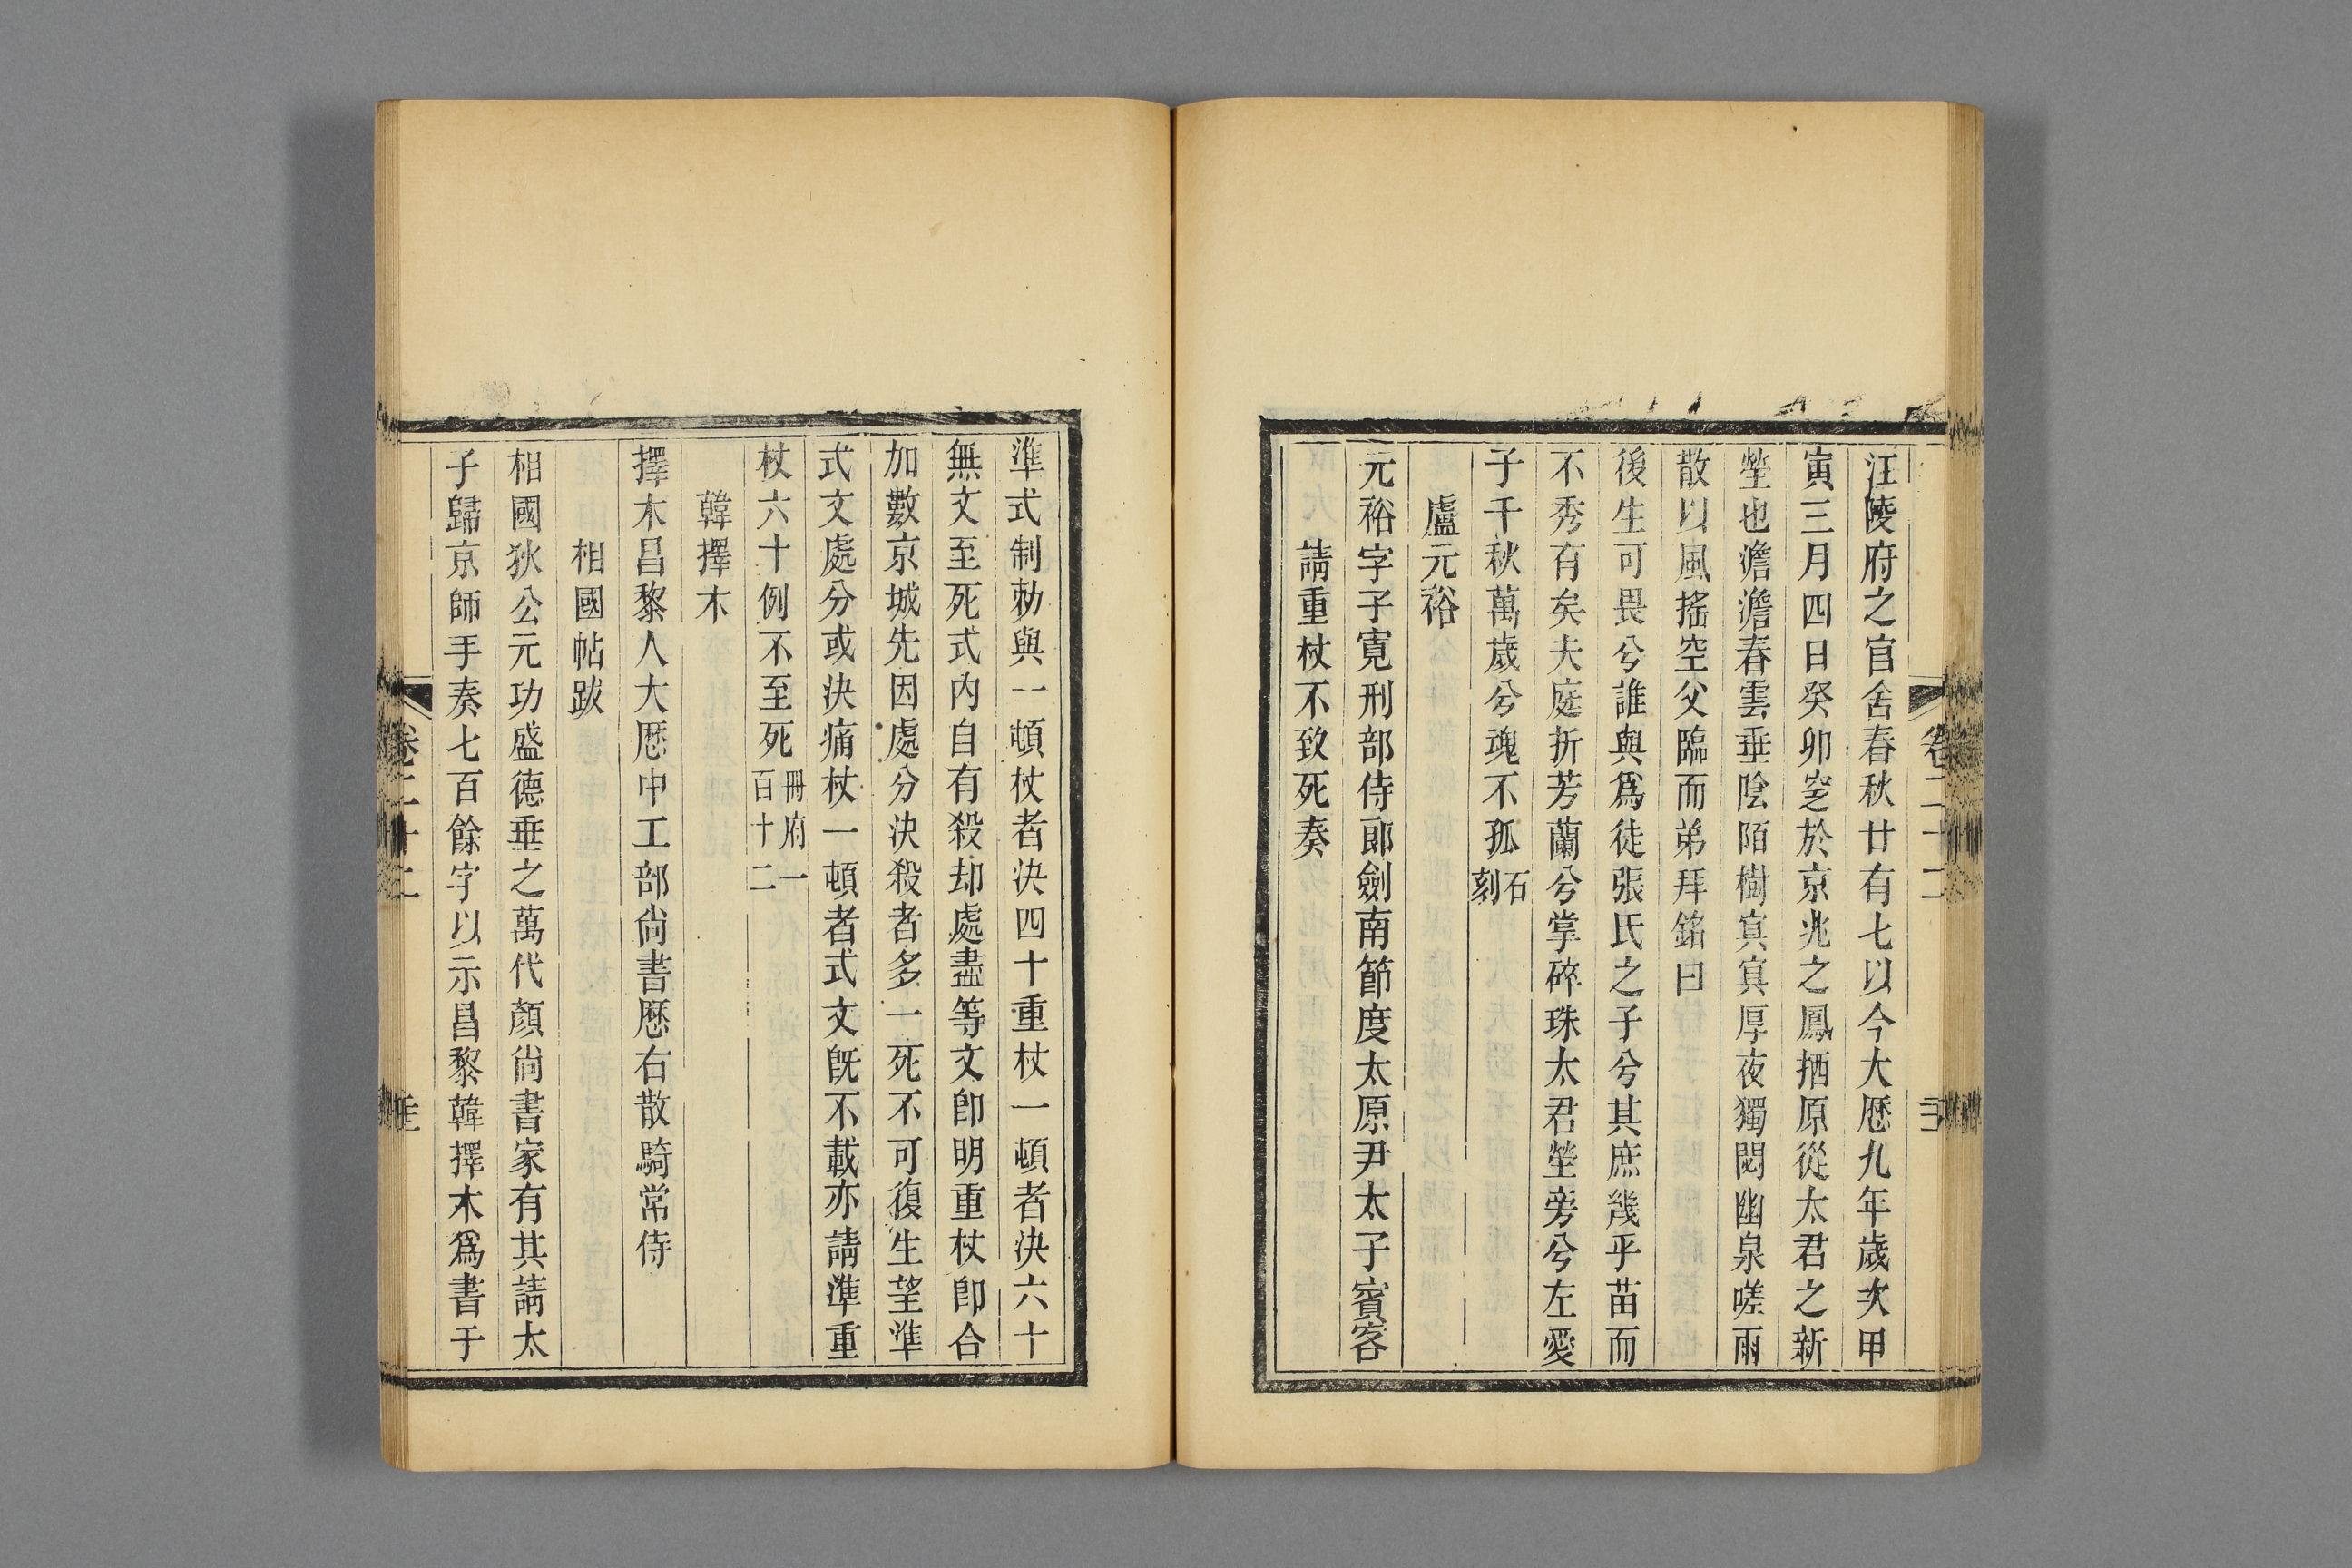 汪陵府之官舍春秋廿有七以今大厯九年歲次甲
寅三月四日癸卯窆於京兆之鳳栖原從太君之新
塋也澹澹春雲垂陰陌樹寘寘厚夜獨閟幽泉嗟雨
散以風搖空父臨而弟拜銘曰
後生可畏兮誰與爲徒張氏之子兮其庶幾乎苗而
不秀有矣夫庭折芳蘭兮掌碎珠太君塋旁兮左愛
子千秋萬歲兮魂不孤石刻
盧元裕
元裕字子寬刑部侍郎劍南節度太原尹太子賓客
請重杖不致死奏
準式制勑與一頓杖者決四十重杖一頓者決六十
無文至死式內自有殺却處盡等文卽明重杖卽合
加數京城先因處分決殺者多一死不可復生望準
式文處分或決痛杖一頓者式文旣不載亦請準重
杖六十例不至死冊府一百十二
韓擇木
擇木昌黎人大厯中工部尙書厯右散騎常侍
相國帖跋
相國狄公元功盛德垂之萬代顏尙書家有其請太
子歸京師手奏七百餘字以示昌黎韓擇木爲書于
卷二十二